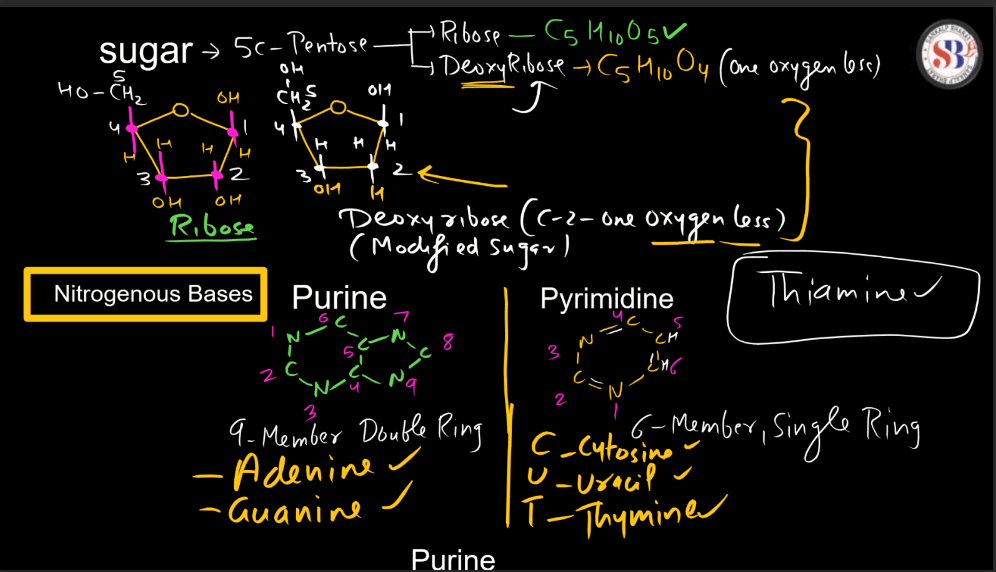 sugar → 5c-Pentose → Ribose — C5 H10 O5 ✓
→ DeoxyRibose → C5 H10 O4 (one oxygen less)
SB
HO-CH2 5 O OH
4 1
H H H H
3 2
OH OH
Ribose
OH
CH2 5 O OH
4 1
H H H
3 2
OH H
Deoxyribose (C-2-one oxygen less)
(Modified sugar)
Nitrogenous Bases
Purine
1 N 6 C 7 N
5 C C 8
2 C C 4 N 9
N 3
9-Member Double Ring
- Adenine ✓
- Guanine ✓
Pyrimidine
4 C 5 CH
3 N CH 6
2 C N 1
6-Member, Single Ring
C - Cytosine ✓
U - Uracil ✓
T - Thymine ✓
Thiamine ✓
Purine